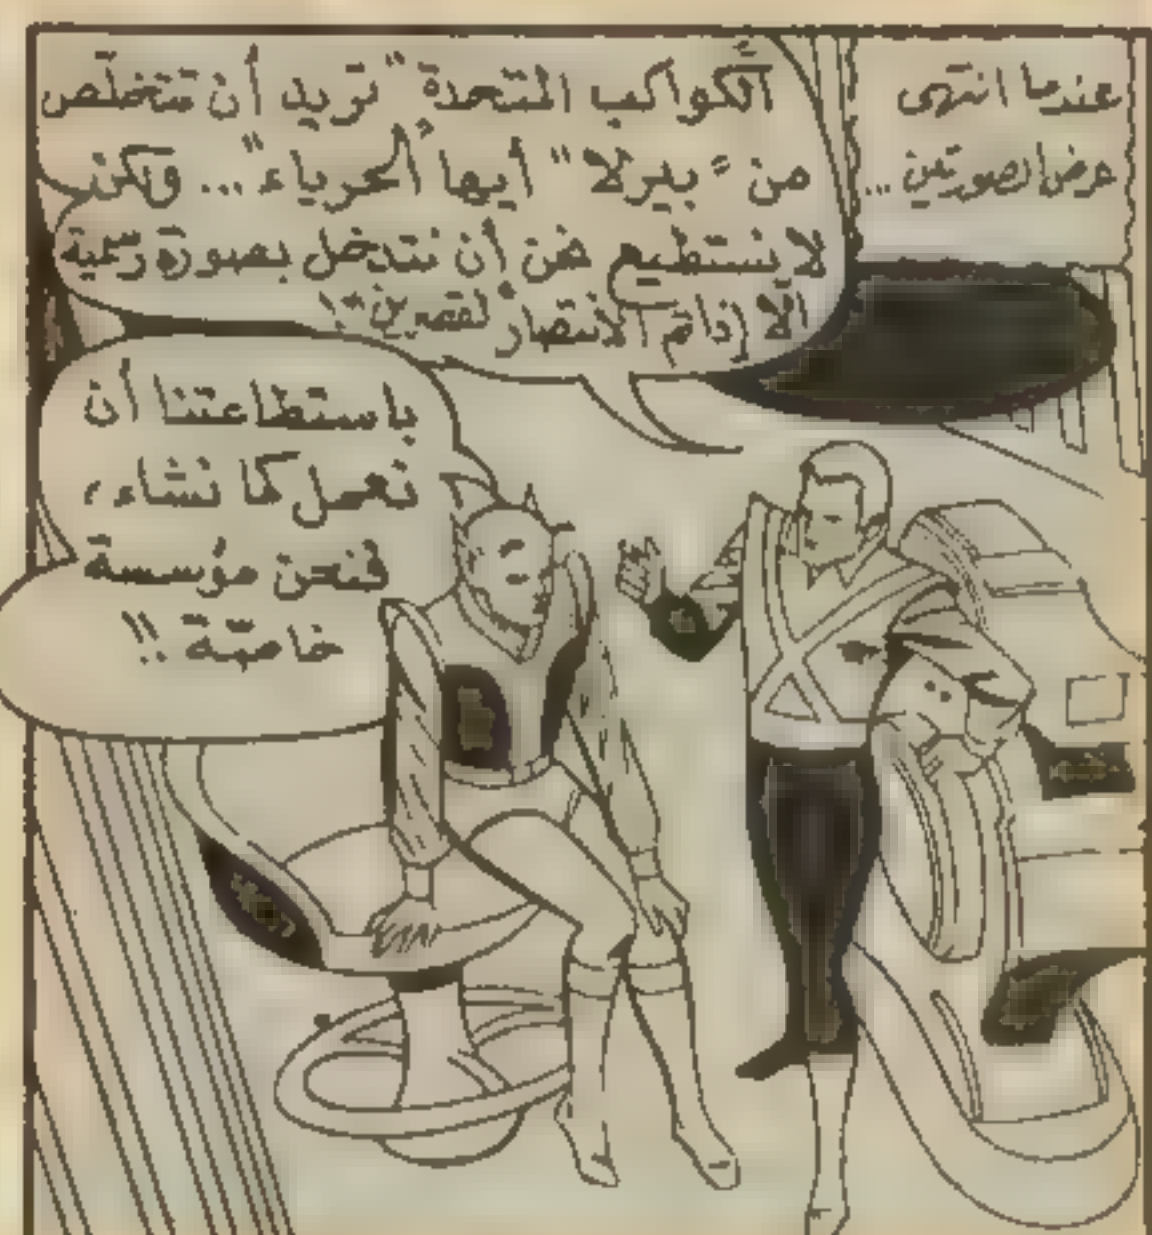 عندما انتهى
عرض الصورتين...
"الكواكب المتحدة" تريد أن تتخلّص
من "بيرلا" أيها الحرباء"... ولكن
لا نستطيع نحن أن نتدخل بصورة رسمية
الّا إذا تم الانتصار
باستطاعتنا أن
نعمل كما نشاء،
فنحن مؤسسة
خاصّة !!